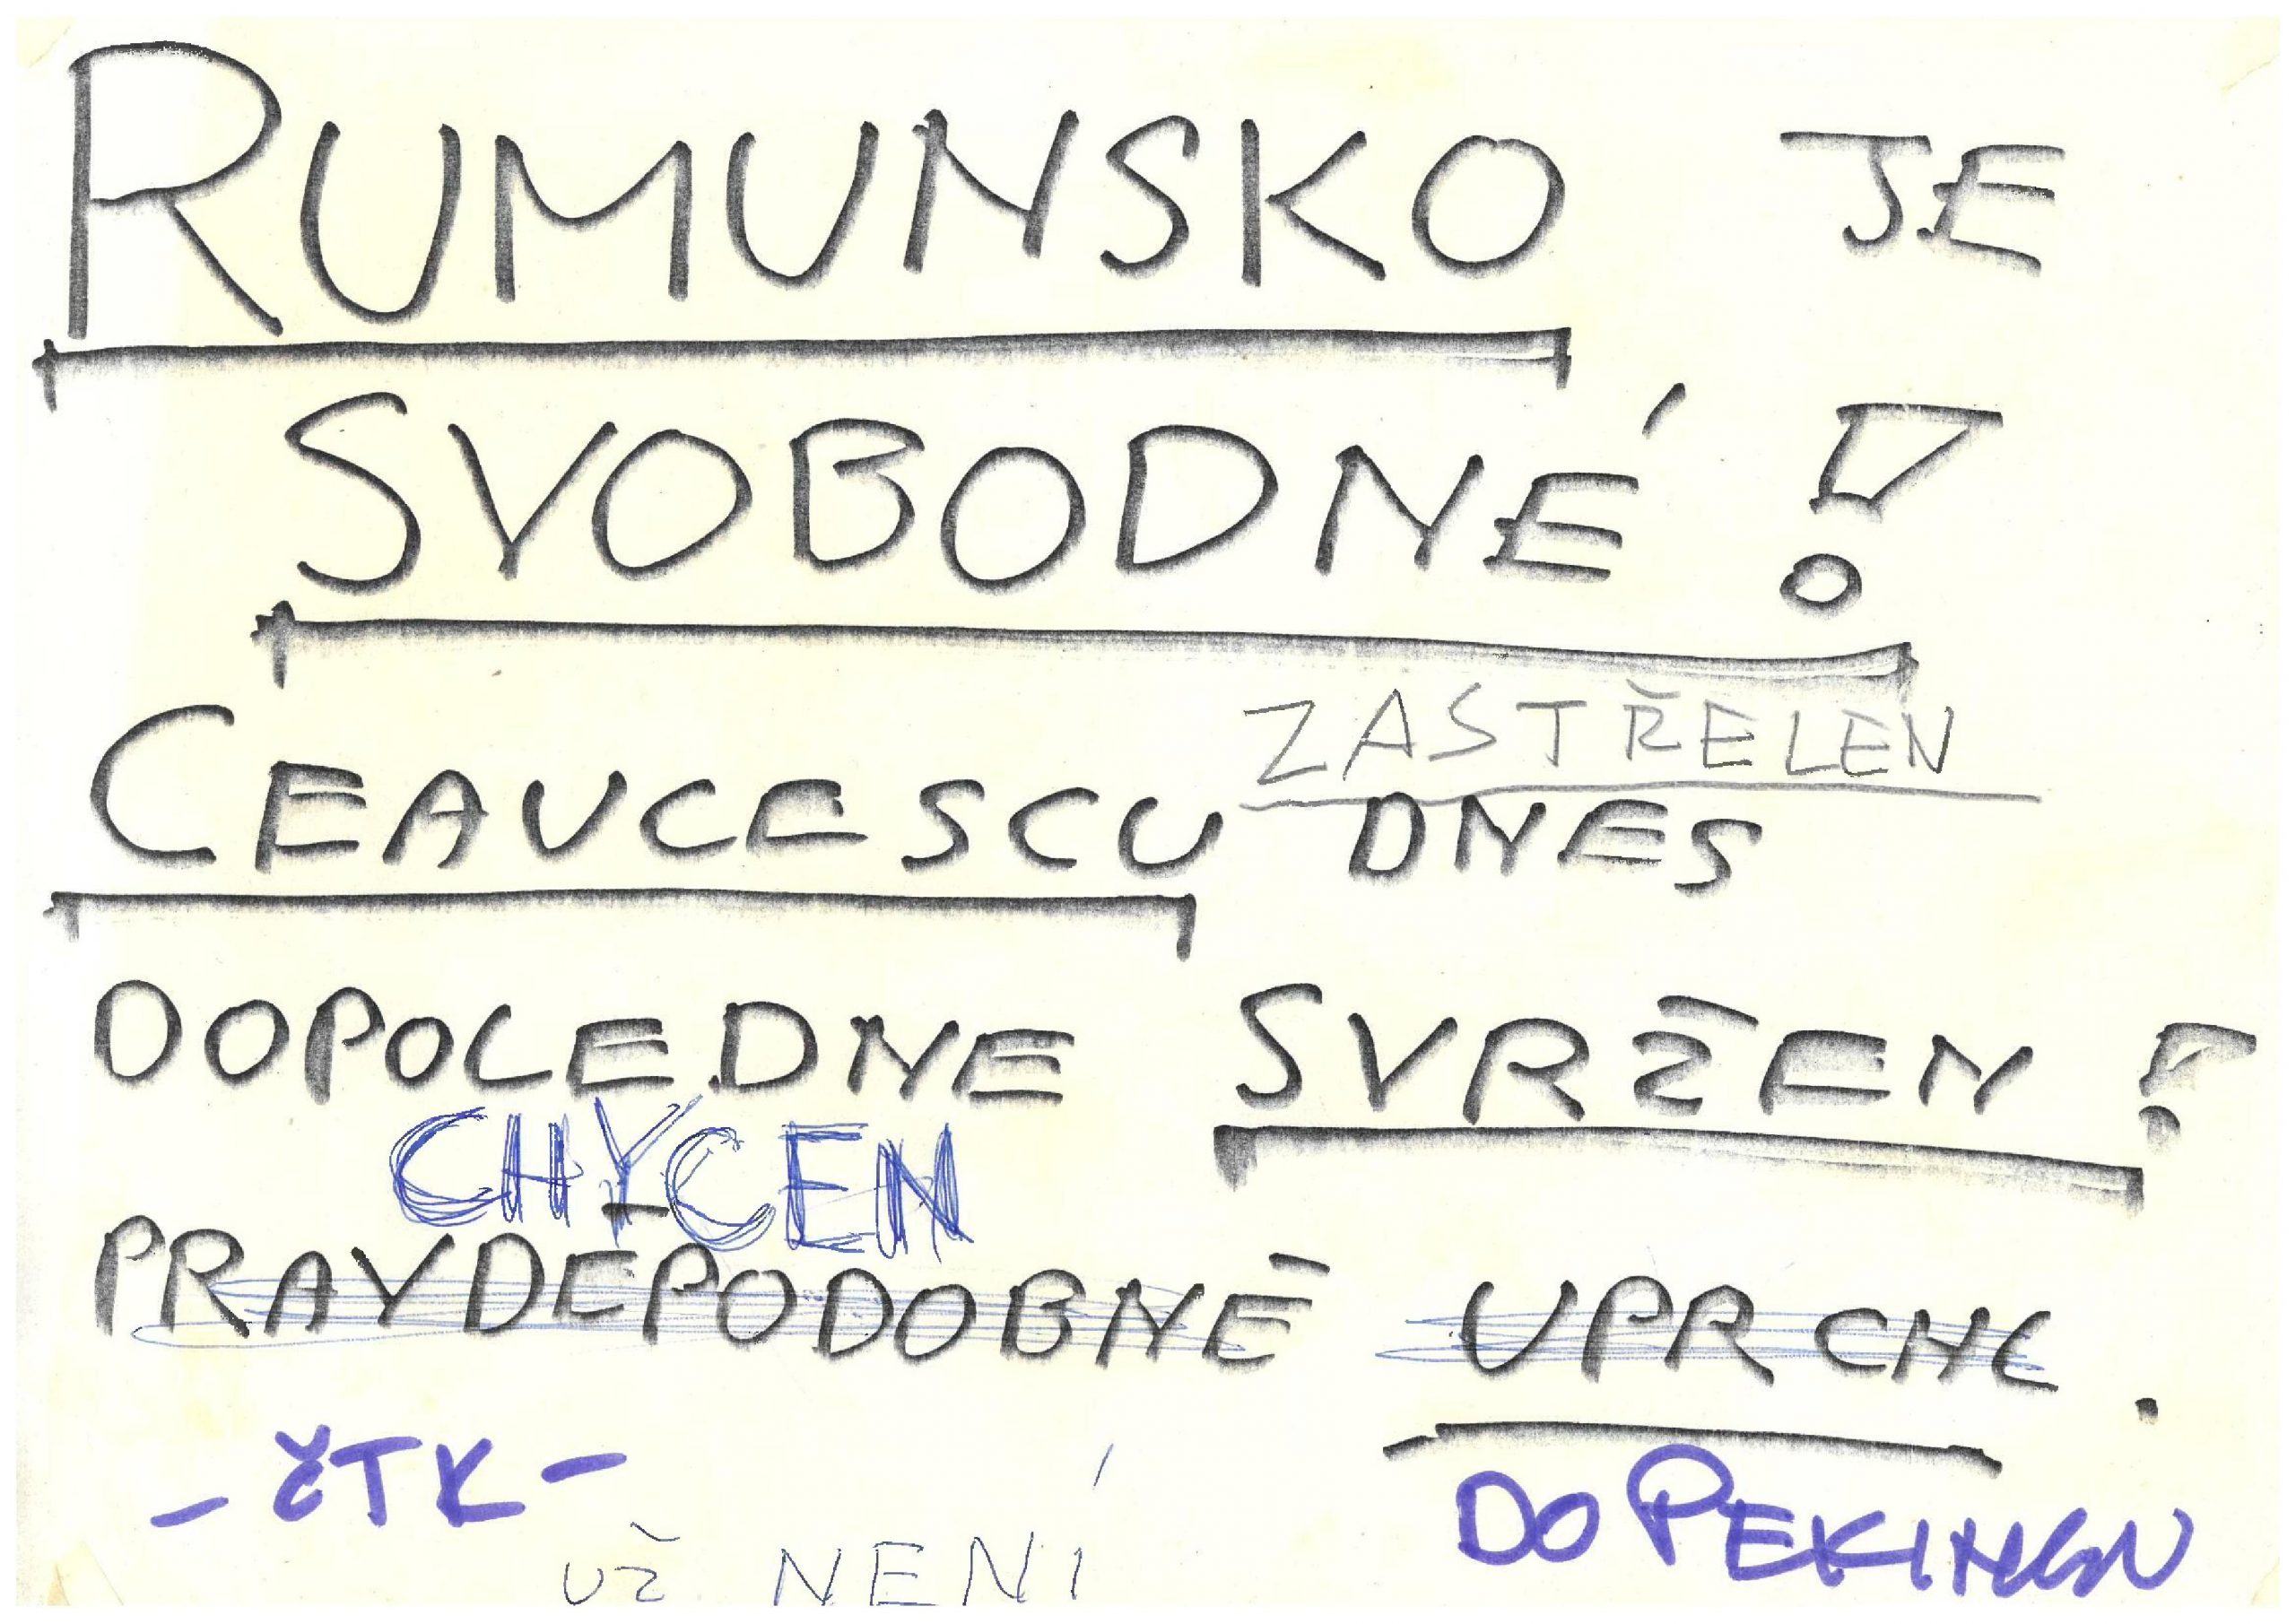 RUMUNSKO JE
SVOBODNÉ!
ZASTŘELEN
CEAUCESCU DNES
DOPOLEDNE SVRŽEN!
CHYCEN
PRAVDĚPODOBNĚ UPRCHL.
-ČTK-
DO PEKINGU
UŽ NENÍ